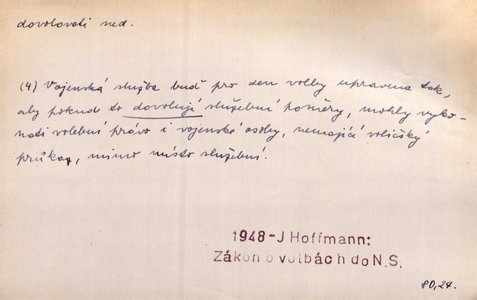 dovolovati ned.
(4) Vojenská služba buď pro den volby upravena tak,
aby pokud to dovolují služební poměry, mohly vyko-
nati volební právo i vojenské osoby, nemající voličský
průkaz, mimo místo služební.
1948-J Hoffmann:
Zákon o volbách do N.S.
80,24.